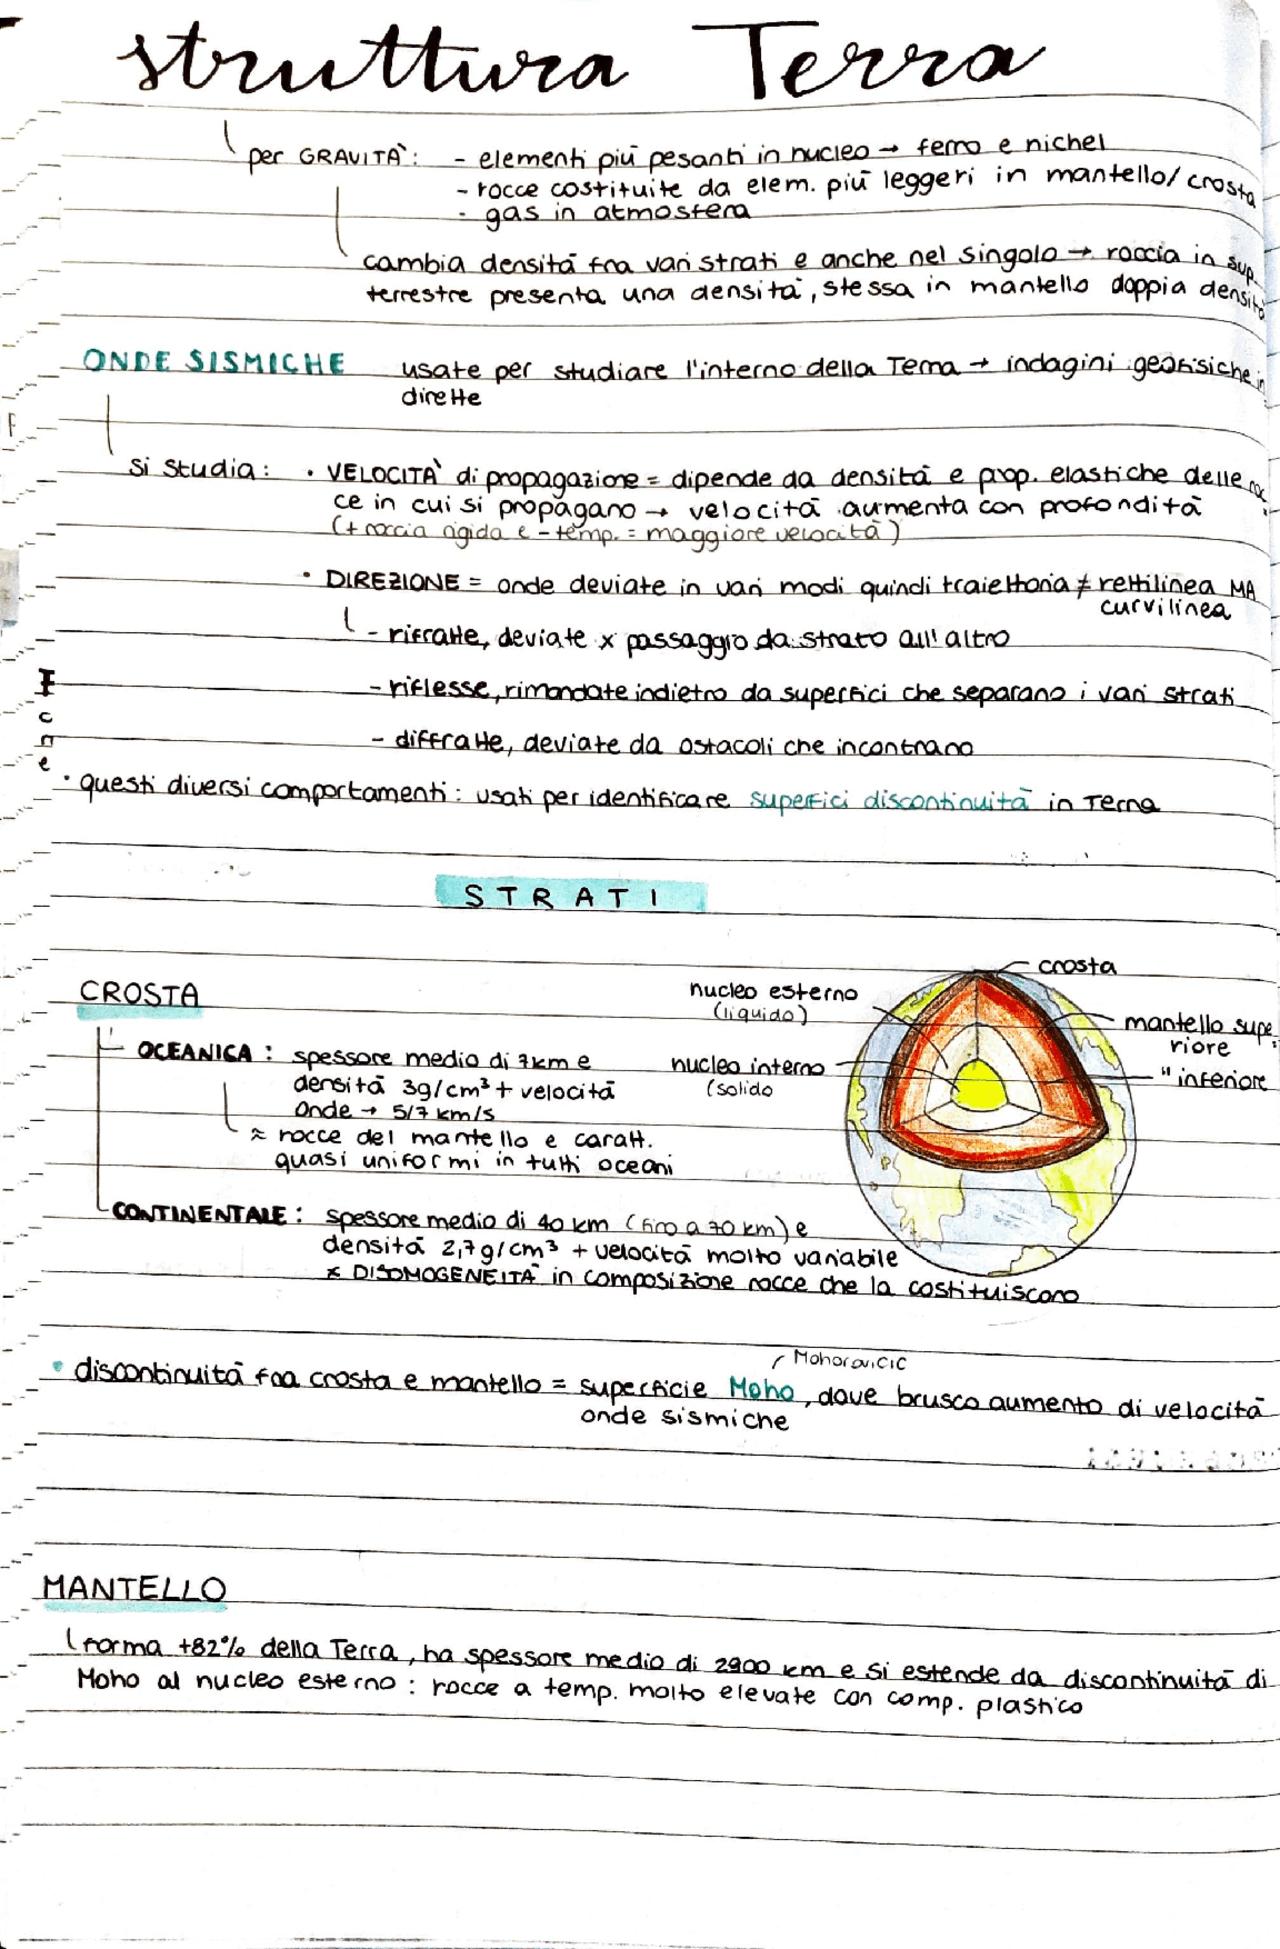 struttura Terra
per GRAVITÀ: - elementi più pesanti in nucleo → ferro e nichel
- rocce costituite da elem. più leggeri in mantello/crosta
- gas in atmosfera
cambia densità fra vari strati e anche nel singolo → roccia in sup.
terrestre presenta una densità, stessa in mantello doppia densità
ONDE SISMICHE usate per studiare l'interno della Terra → indagini geofisiche in
dirette
si studia: • VELOCITÀ di propagazione = dipende da densità e prop. elastiche delle roc
ce in cui si propagano → velocità aumenta con profondità
(+ roccia rigida e - temp. = maggiore velocità)
• DIREZIONE = onde deviate in vari modi quindi traiettoria ≠ rettilinea MA
curvilinea
- rifratte, deviate x passaggio da strato all'altro
- riflesse, rimandate indietro da superfici che separano i vari strati
- diffratte, deviate da ostacoli che incontrano
• questi diversi comportamenti: usati per identificare superfici discontinuità in Terra
STRATI
CROSTA
OCEANICA: spessore medio di 7km e
densità 3g/cm³ + velocità
onde → 5/7 km/s
≈ rocce del mantello e caratt.
quasi uniformi in tutti oceani
crosta
nucleo esterno
(liquido)
mantello supe
riore
nucleo interno
(solido
" inferiore
CONTINENTALE: spessore medio di 40 km (fino a 70 km) e
densità 2,7g/cm³ + velocità molto variabile
x DISOMOGENEITÀ in composizione rocce che la costituiscono
Mohorovicic
• discontinuità fra crosta e mantello = superficie Moho, dove brusco aumento di velocità
onde sismiche
MANTELLO
forma +82% della Terra, ha spessore medio di 2900 km e si estende da discontinuità di
Moho al nucleo esterno: rocce a temp. molto elevate con comp. plastico